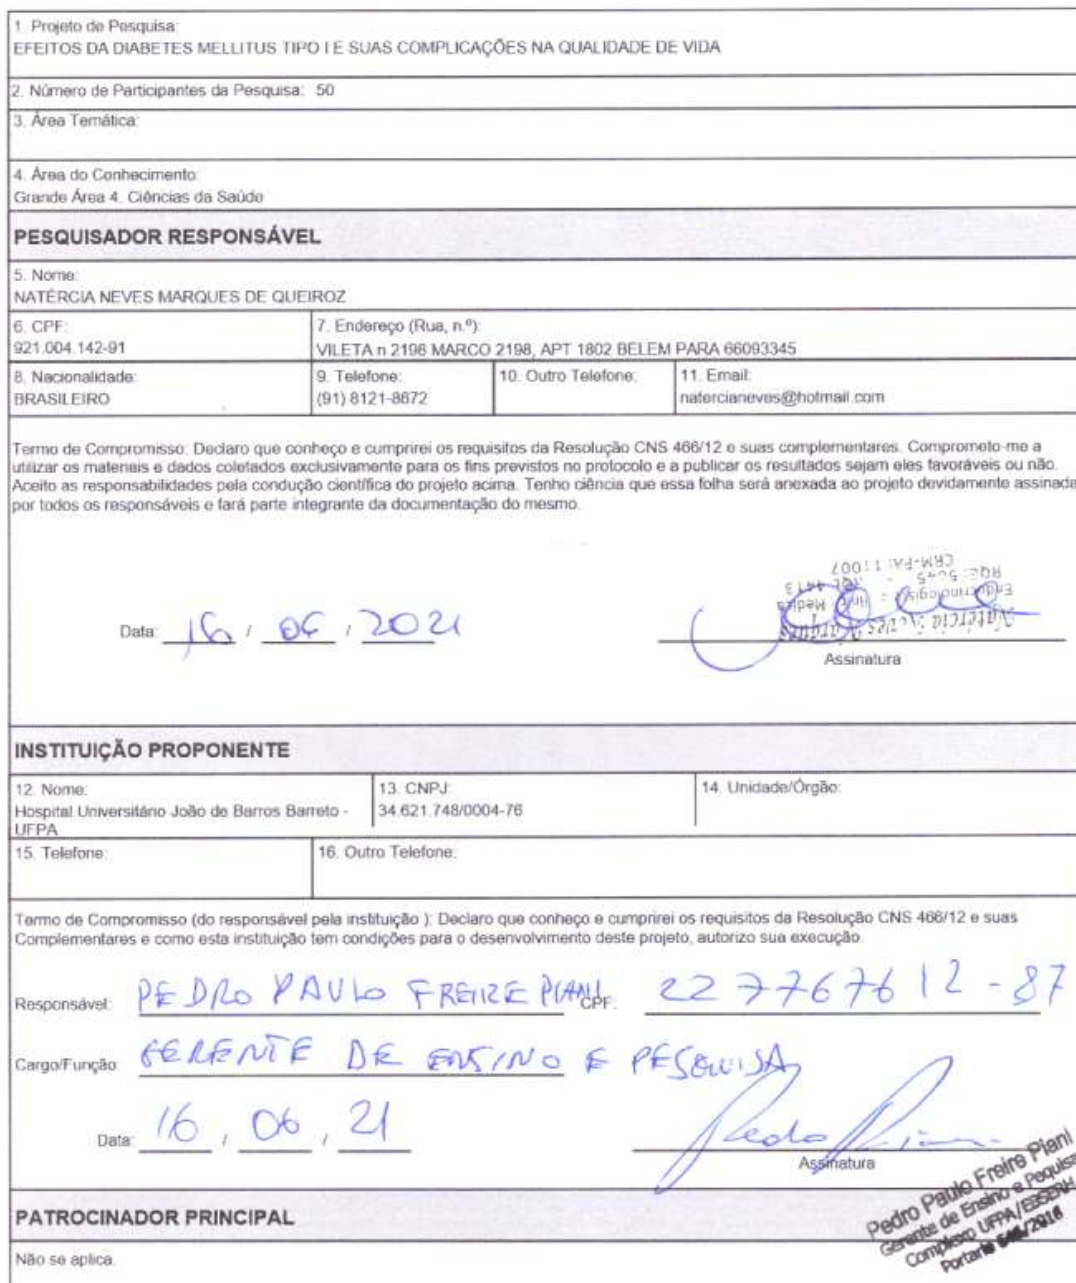 1. Projeto de Pesquisa:
EFEITOS DA DIABETES MELLITUS TIPO I E SUAS COMPLICAÇÕES NA QUALIDADE DE VIDA
2. Número de Participantes da Pesquisa: 50
3. Área Temática:
4. Área do Conhecimento:
Grande Área 4. Ciências da Saúde
PESQUISADOR RESPONSÁVEL
5. Nome:
NATÉRCIA NEVES MARQUES DE QUEIROZ
6. CPF:
921.004.142-91
7. Endereço (Rua, n.º):
VILETA n 2198 MARCO 2198, APT 1802 BELEM PARA 66093345
8. Nacionalidade:
BRASILEIRO
9. Telefone:
(91) 8121-8672
10. Outro Telefone:
11. Email:
natercianeves@hotmail.com
Termo de Compromisso: Declaro que conheço e cumprirei os requisitos da Resolução CNS 466/12 e suas complementares. Comprometo-me a
utilizar os materiais e dados coletados exclusivamente para os fins previstos no protocolo e a publicar os resultados sejam eles favoráveis ou não.
Aceito as responsabilidades pela condução científica do projeto acima. Tenho ciência que essa folha será anexada ao projeto devidamente assinada
por todos os responsáveis e fará parte integrante da documentação do mesmo.
Data: 16 / 06 / 2021
Natércia Neves Marques
Endocrinologista
CRM-PA: 11007
Assinatura
INSTITUIÇÃO PROPONENTE
12. Nome:
Hospital Universitário João de Barros Barreto -
UFPA
13. CNPJ:
34.621.748/0004-76
14. Unidade/Órgão:
15. Telefone:
16. Outro Telefone:
Termo de Compromisso (do responsável pela instituição ): Declaro que conheço e cumprirei os requisitos da Resolução CNS 466/12 e suas
Complementares e como esta instituição tem condições para o desenvolvimento deste projeto, autorizo sua execução.
Responsável: PEDRO PAULO FREIRE PIANI CPF: 227767612-87
Cargo/Função: GERENTE DE ENSINO E PESQUISA
Data: 16 / 06 / 21
Pedro Piani
Assinatura
Pedro Paulo Freire Piani
Gerente de Ensino e Pequisa
Complexo UFPA/EBSERH
PATROCINADOR PRINCIPAL
Não se aplica.